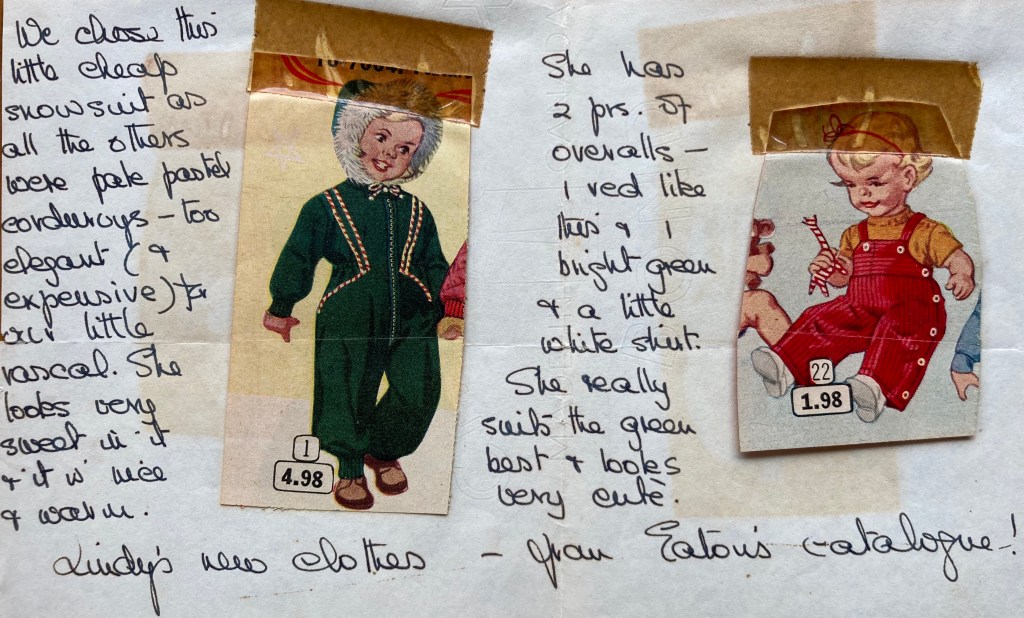 We chose this
little cheap
snowsuit as
all the others
were pale pastel
corduroys - too
elegant (&
expensive) for
our little
rascal. She
looks very
sweet in it
& it is nice
& warm.
1
4.98
She has
2 prs. of
overalls -
1 red like
this & 1
bright green
& a little
white shirt.
She really
suits the green
best & looks
very cute.
22
1.98
Lindy's new clothes - from Eaton's catalogue!